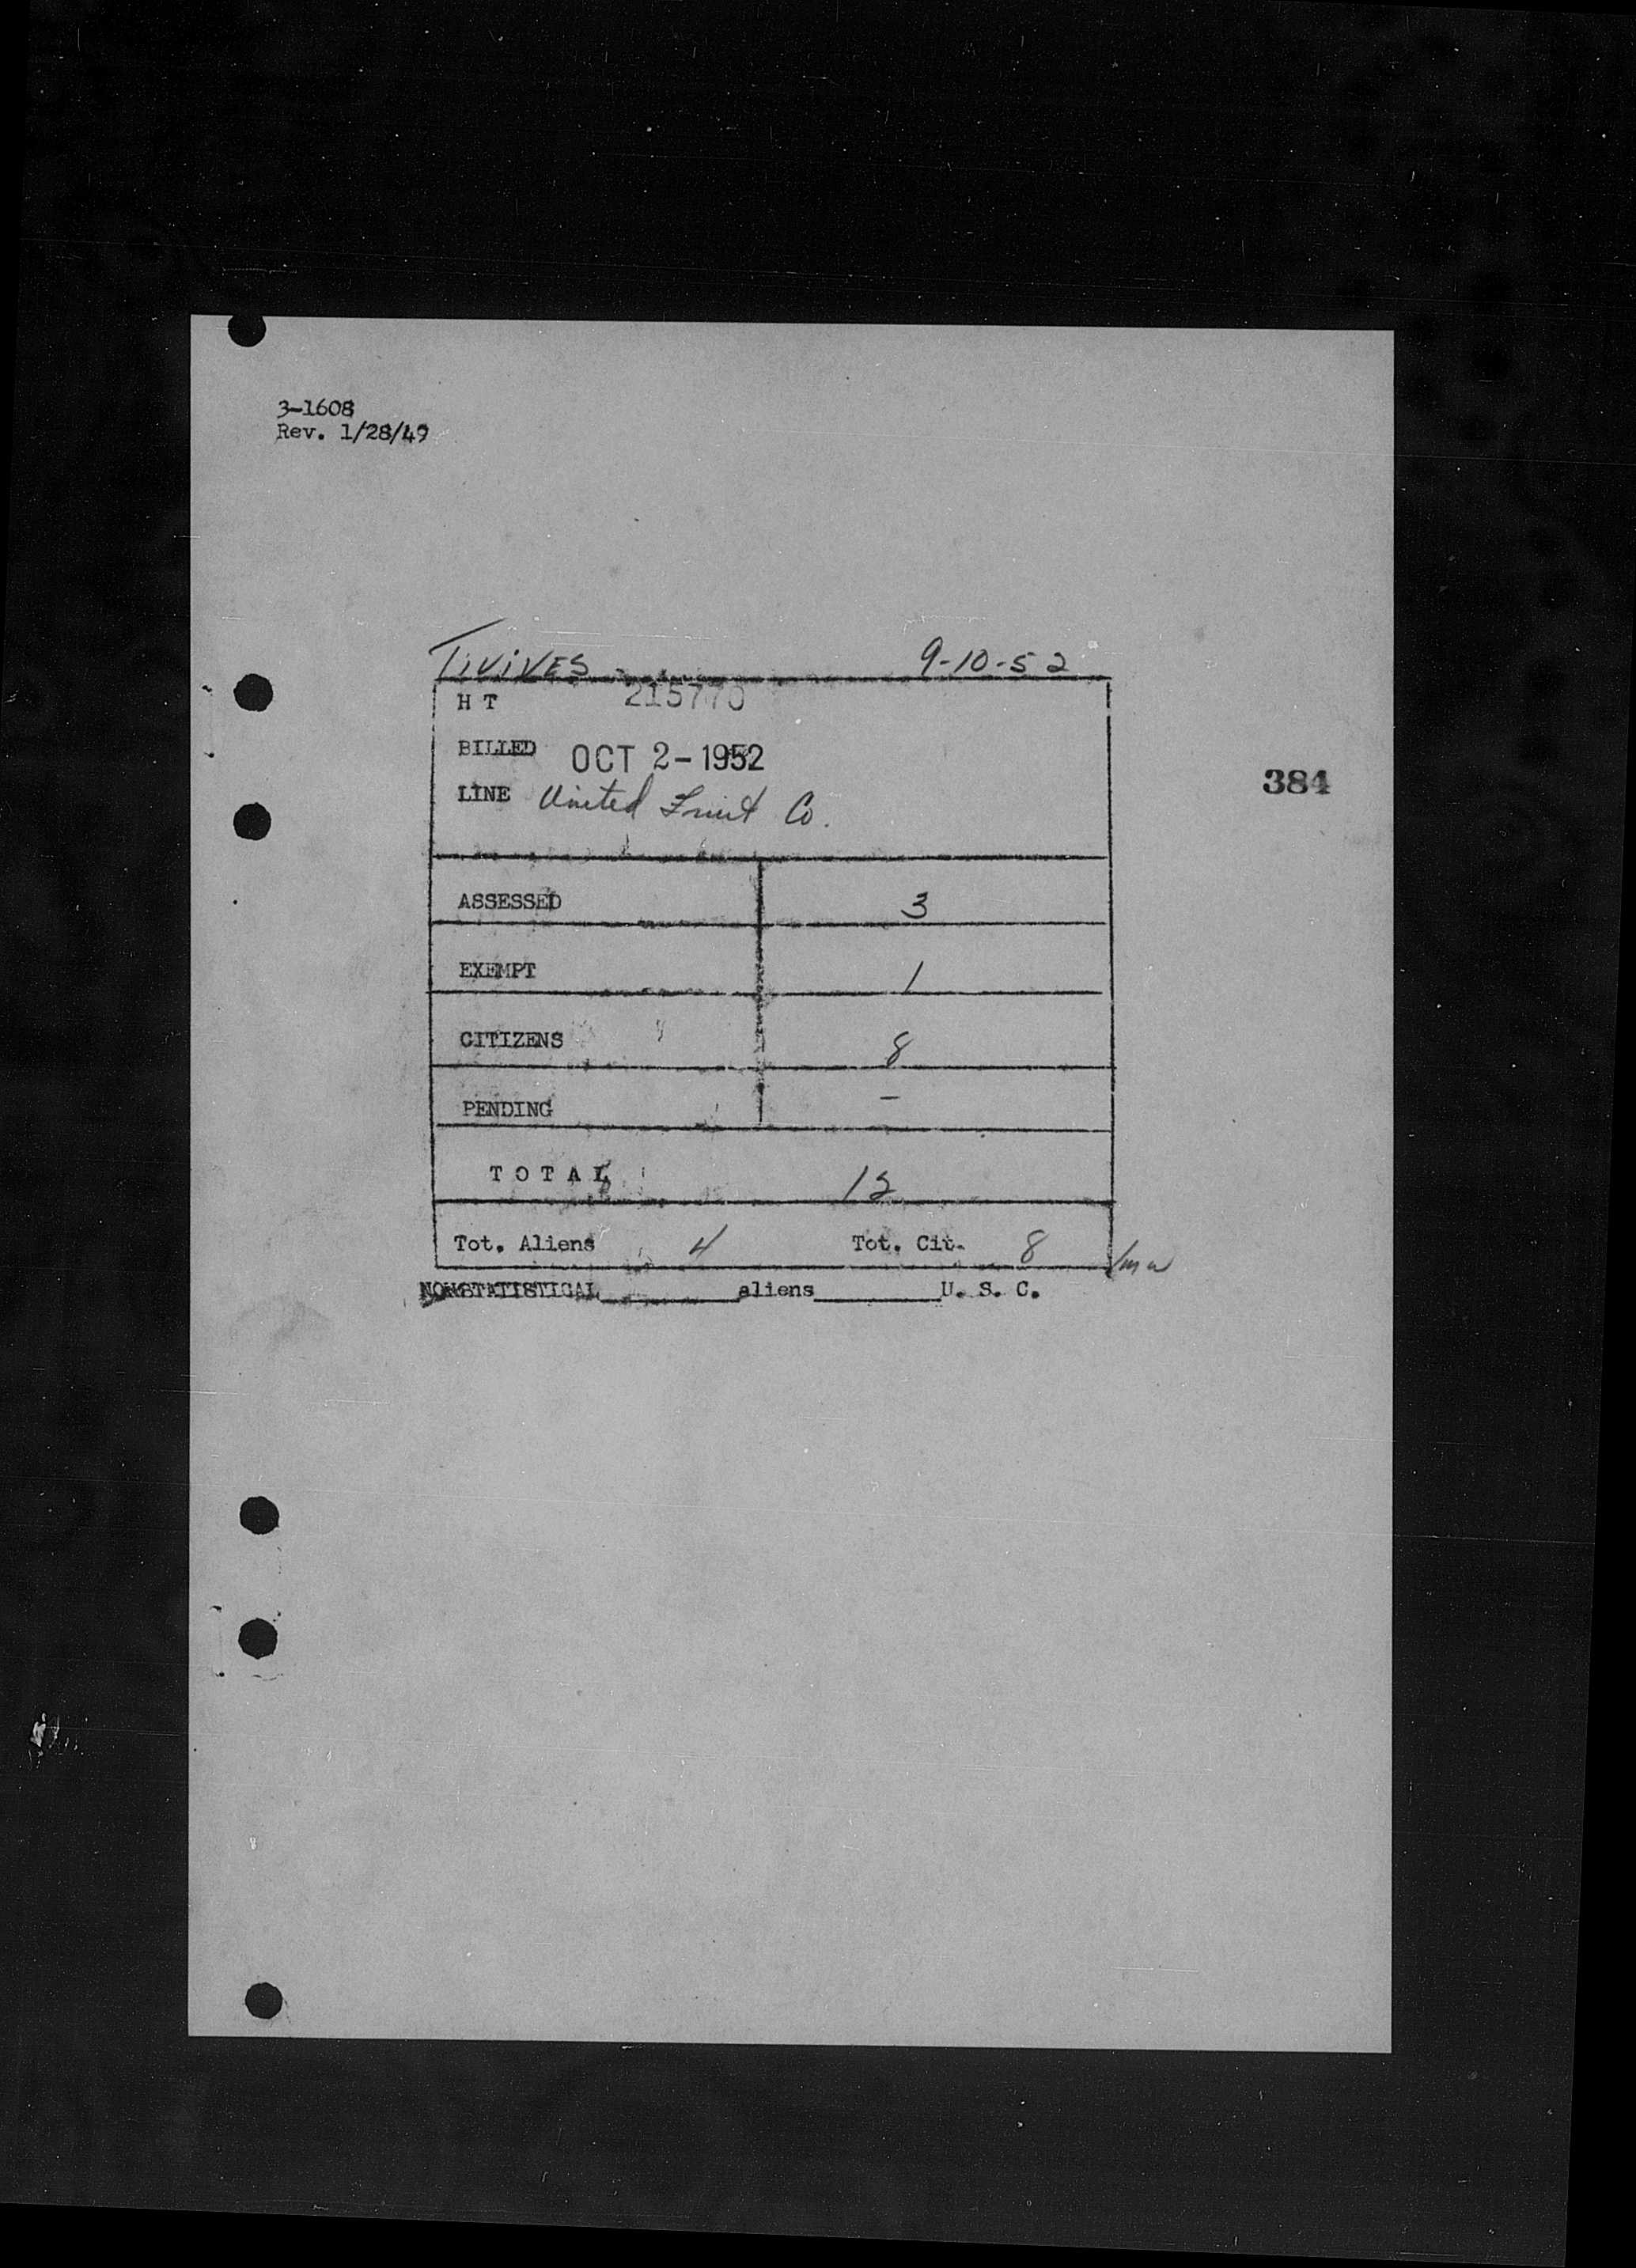 3-1608
Rev. 1/28/49
TIVIVES 9-10-52
H T 215770
BILLED OCT 2-1952
384
LINE United Fruit Co.
ASSESSED 3
EXEMPT 1
CITIZENS 8
PENDING -
TOTAL 12
Tot. Aliens 4 Tot. Cit. 8
NONSTATISTICAL aliens U. S. C.